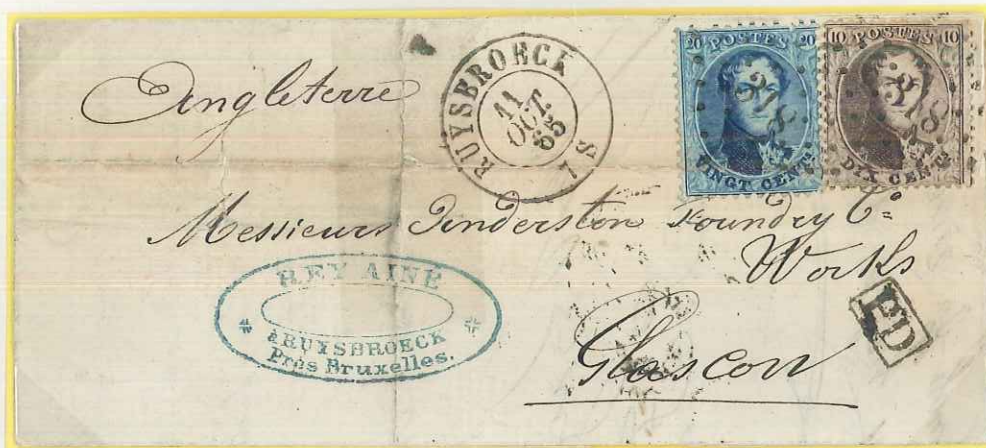 Angleterre
RUYSBROECK
11
OCT.
65
7 S
20 POSTES 20
VINGT CENTES
10 POSTES 10
DIX CENTES
318
318
Messieurs Finderston Foundry Co
Works
Glascow
PD
REY AINÉ
à RUYSBROECK
Près Bruxelles.